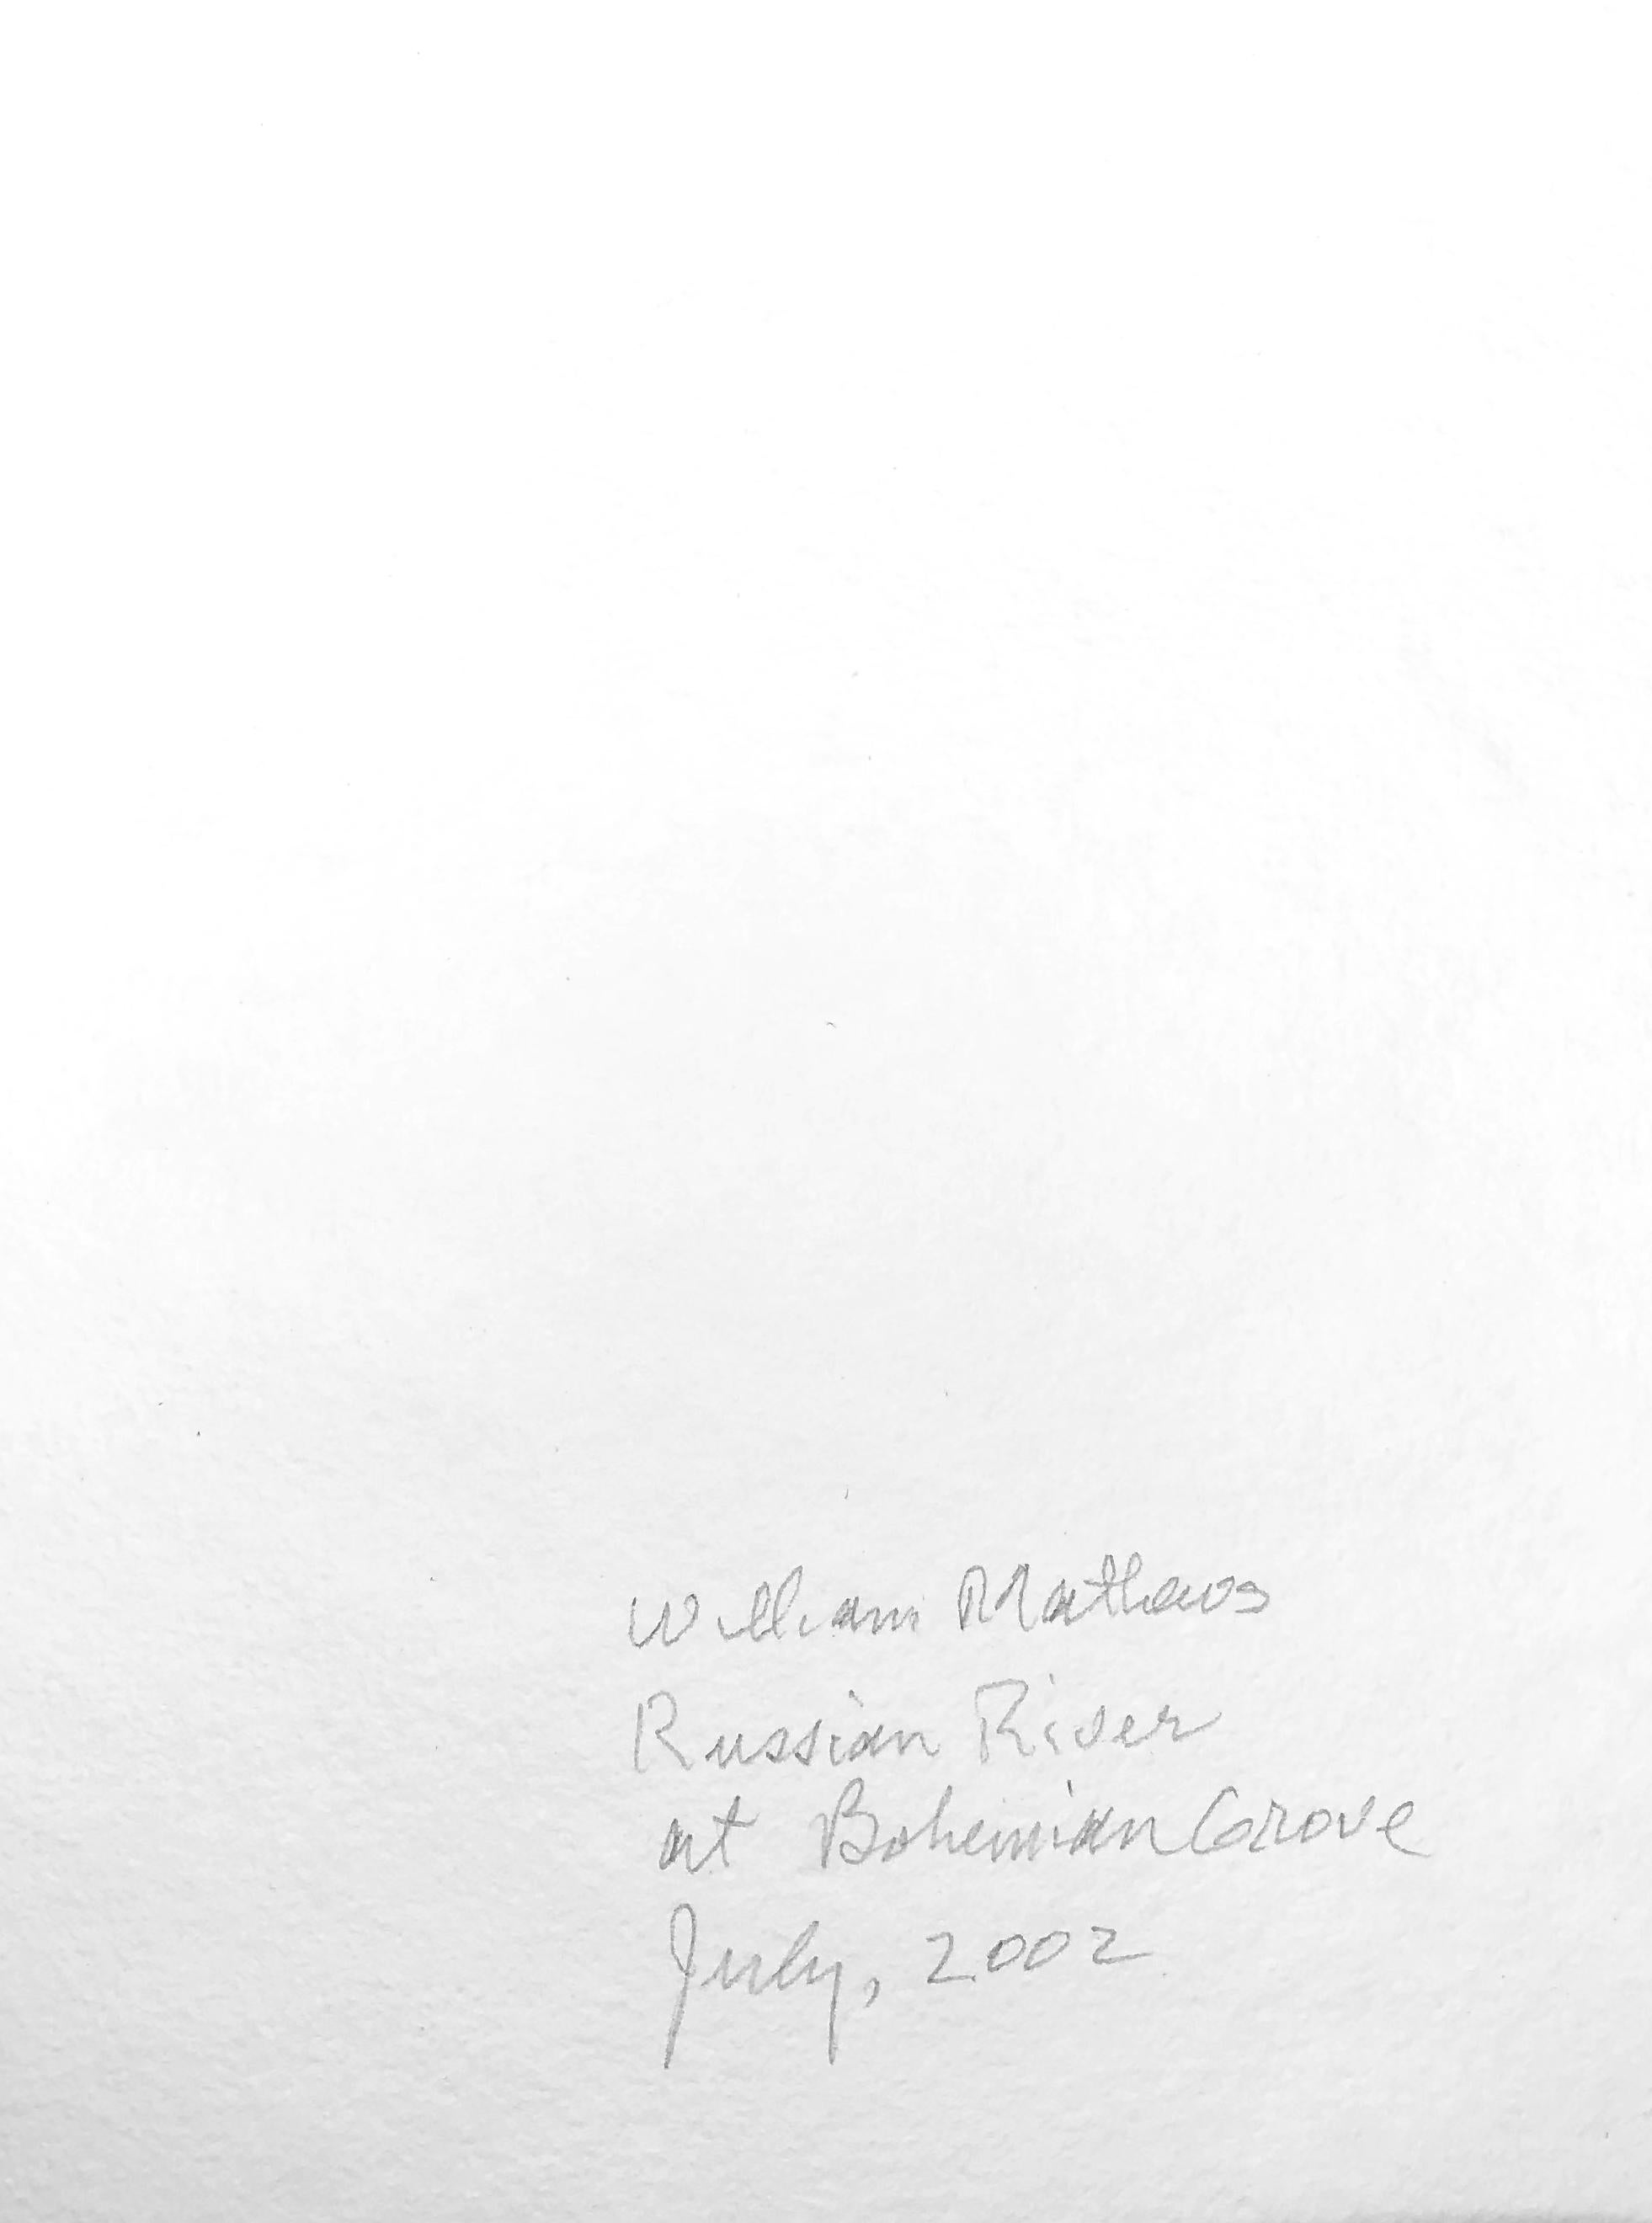 William Mathews
Russian River
at Bohemian Grove
July, 2002